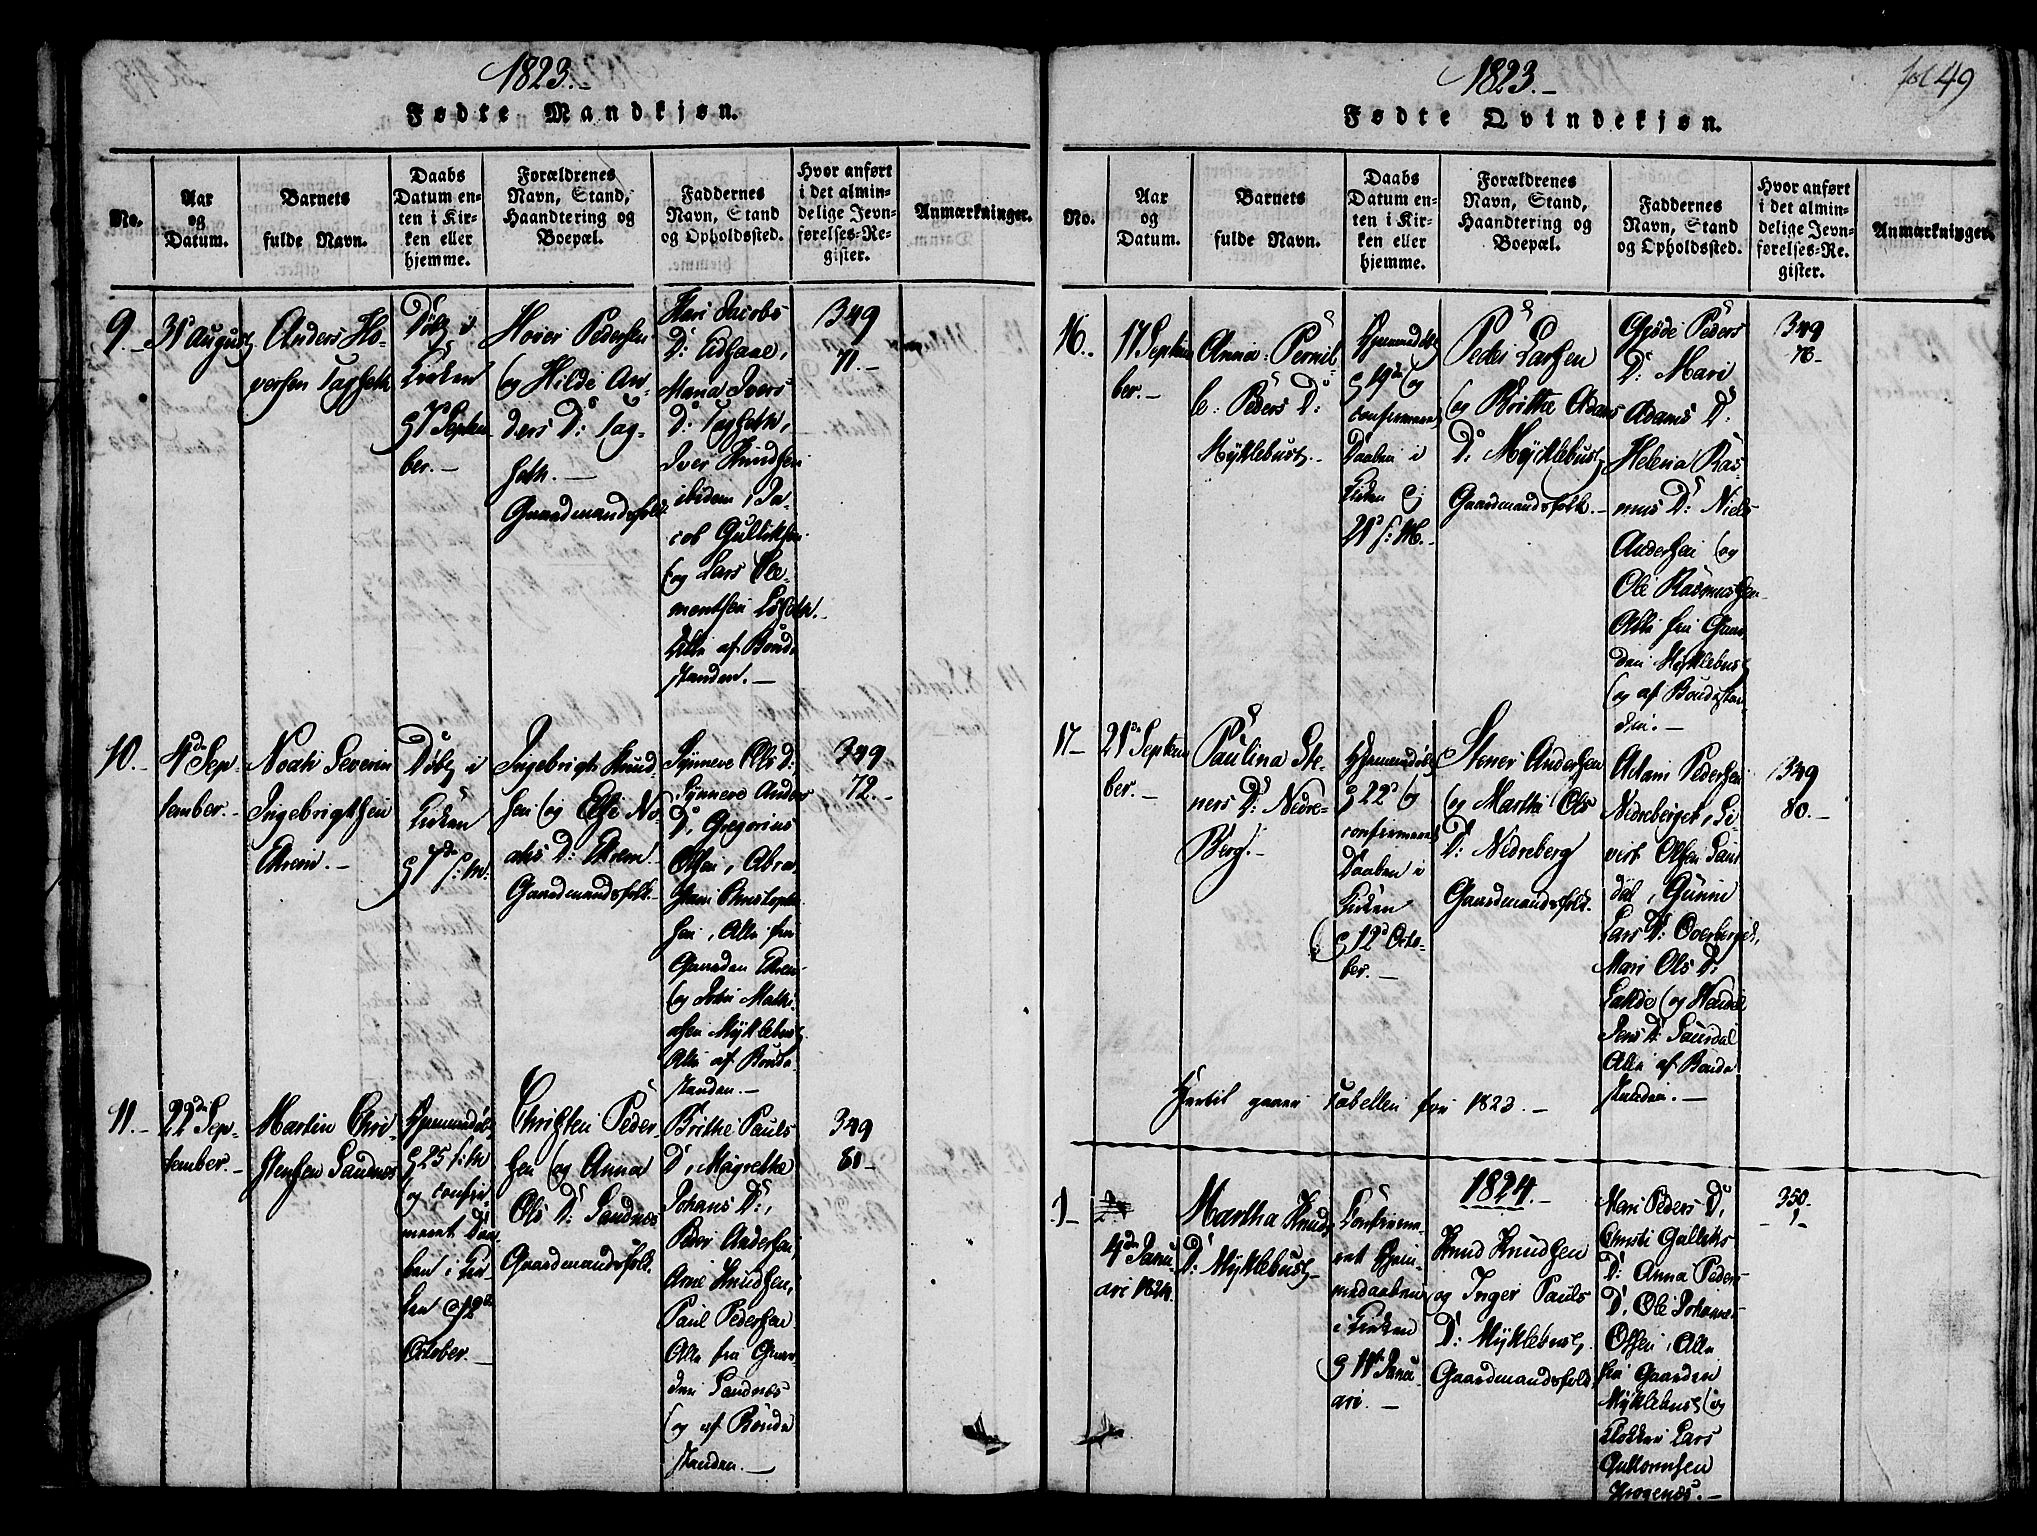 1823.-
Fødte Mandkjøn.
No.
Aar
og
Datum.
Barnets
fulde Navn.
Daabs
Datum en-
ten i Kir-
ken eller
hjemme.
Forældrenes
Navn, Stand,
Haandtering og
Boepæl.
Faddernes
Navn, Stand
og Opholdssted.
Hvor anført
i det almin-
delige Jevn-
førelses-Re-
gister.
Anmærkninger.
9.-
31 August
Anders Ho-
versen Tagseth
Døbt i
Kirken
7 Septem
ber.-
Hover Pedersen
og Hilde An-
ders D: Tag-
seth.-
Gaardmandsfolk
Mari Jacobs
D: Eidsaae,
Maria Ivers
D: Tagseth,
Iver Knudsen
ibidem, Ja-
cob Gulliksen
og Lars Cle-
mentsen Løseth.
Alle af Bonde
standen.-
349
71.-
10.-
4de Sep-
tember.-
Noah Severin
Ingebrigtsen
Ekrem.-
Døbt i
Kirken
7de s: M:
Ingebrigt Knud
sen og Else No-
ahs D: Ekrem.
Gaardmandsfolk.-
Synneve Ols D:
Synneve Anders
D, Gregorius
Olsen, Abra-
ham Christoph
sen, Alle fra
Gaarden Ekrem
og John Mathi-
asen Myklebust
Alle af Bonde
standen.-
349
72.-
11.-
22de Sep-
tember.-
Martin Chri-
stensen Sandnes
Hjemmedøbt
25 s: M
og confir
meret Daa-
ben i Kir-
ken 12te
October.-
Christen Peder-
sen og Anna
Ols D: Sandnes
Gaardmandsfolk.
Brithe Pauls
D, Magrethe
Johans D:,
Peder Andersen,
Arne Knudsen,
Paul Pedersen
Alle fra Gaar-
den Sandnes
og af Bonde
standen.-
349
81-
1823.-
fol 49
Fødte Qvindekjøn.
No.
Aar
og
Datum.
Barnets
fulde Navn.
Daabs
Datum en-
ten i Kir-
ken eller
hjemme.
Forældrenes
Navn, Stand,
Haandtering og
Boepæl.
Faddernes
Navn, Stand
og Opholdssted.
Hvor anført
i det almin-
delige Jevn-
førelses-Re-
gister.
Anmærkninger.
16..
17 Septem
ber.-
Anna Pernil-
le Peders D:
Myklebust.-
Hjemmedøbt
19de og
confirmeret
Daaben i
Kirken
21 s: M.-
Peder Larsen
og Brithe Adams
D: Myklebust
Gaardmandsfolk.-
Gjøde Peders
D: Mari
Adams D:
Helena Ras-
mus D: Niels
Andersen og
Ole Rasmussen
Alle fra Gaar
den Myklebust
og af Bondestan-
den.-
349
76-
17-
21de Septem
ber.-
Paulina Ste-
ners D: Nedre-
Berg.-
Hjemmedøbt
22 og
confirmeret
Daaben i
Kirken
12 Octo-
ber.-
Stener Andersen
og Marthe Ols
D: Nedreberg
Gaardmandsfolk.
Adam Pedersen
Nedreberget, Si-
vert Olsen Saur
dal, Gunni
Lars D: Overberget,
Mari Ols D:
Jens D: Saurdal
Alle af Bonde
standen.-
349
80.-
Hertil gaaer Tabellen for 1823.-
1824.-
1-
4de Janu-
ari 1824.
Martha Knuds
D: Myklebust
Confirme-
ret Hjem-
medaaben
i Kirken
11te Janu-
ari.-
Knud Knudsen
og Inger Pauls
D: Myklebust
Gaardmandsfolk.
Mari Peders D,
Christi Gulliks
D: Anna Peders
D, Ole Johannes
Olsen, Alle
fra Gaarden
Myklebust og
Klokker Lars
Guttormsen
350.
-1-